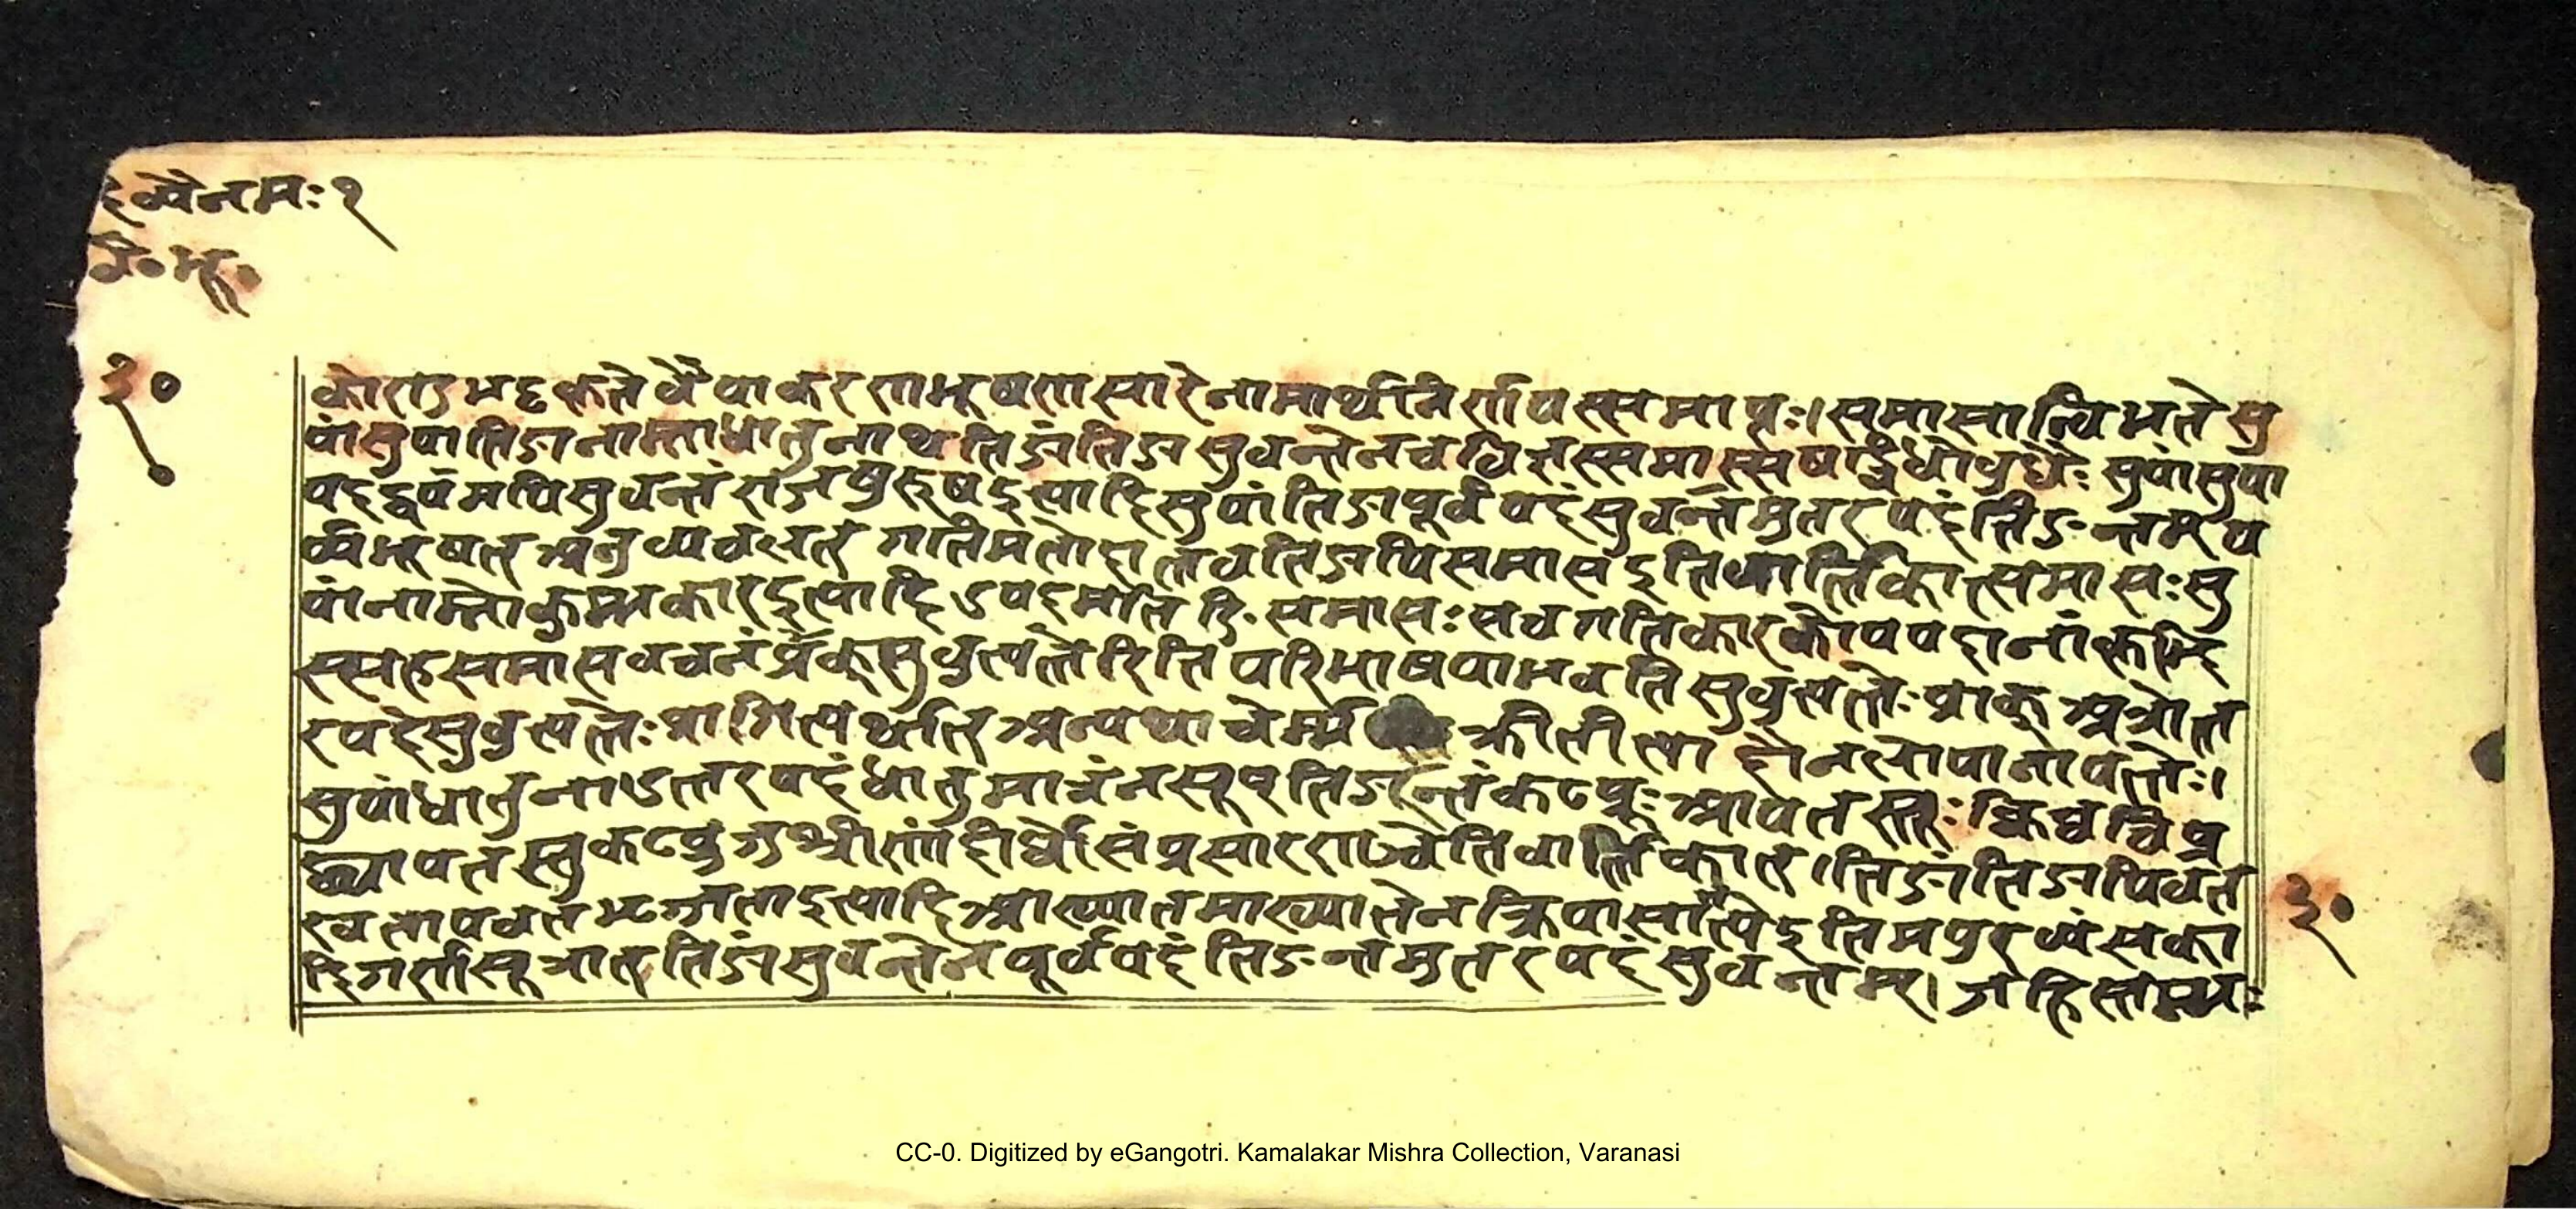 देव्यैनमः१
वै॰भू॰
३०
कोराडभट्टकृतेवैयाकरराभूषरासारेनामार्थनिर्रायस्समाप्तः।समासान्विभजतेसु
पांसुपातिङानाम्नाधातुनाथतिङांतिङा सुवन्तेनचविज्ञस्समासस्सषड्विधोवुधैः सुपांसुपा
पदद्वयमपिसुवन्तं राजपुरुषइत्यादिसुपांतिङापूर्वपदंसुवन्तमुतरपदंतिङन्तम्प
र्यभूषत्अनुव्यवचलत् गतिमतोदात्तवतातिङापिसमासइतिवार्त्तिकात्समासः सु
पांनाम्नाकुम्भकारइत्यादिउपपदमतिङि॰समासः सचगतिकारकोपपदानांकृद्भि
स्सहसमासवचनंप्राक्सुवुत्पत्तेरिति परिभाषयाभवतिसुवुत्पत्तेः प्राक् अत्रोत्त
रपदेसुवुत्पत्तेः प्रागित्यर्थात् अन्यथा चर्म्म क्रीतीत्या दौनलोपानापत्तेः।
सुपांधातुनाउत्तरपदंधातुमात्रंनसुप्तिङन्तंकटप्रूः आयतस्तूः क्विब्वचिप्र
छ्यायतस्तुकटप्रुजुश्रीरांदीर्घोसंप्रसारराञ्चेतिवार्त्तिकात्।तिङांतिङापिवत
खादतापचतभृज्जताइत्यादिआख्यातमाख्यातेनक्रियासातत्येइतिमयुरव्यंसका
दिगरासूत्रात् तिङांसुवन्तेनपूर्वपदंतिङन्तमुतरपदंसुवन्तम्।जहिस्तम्भः
३०
CC-0. Digitized by eGangotri. Kamalakar Mishra Collection, Varanasi